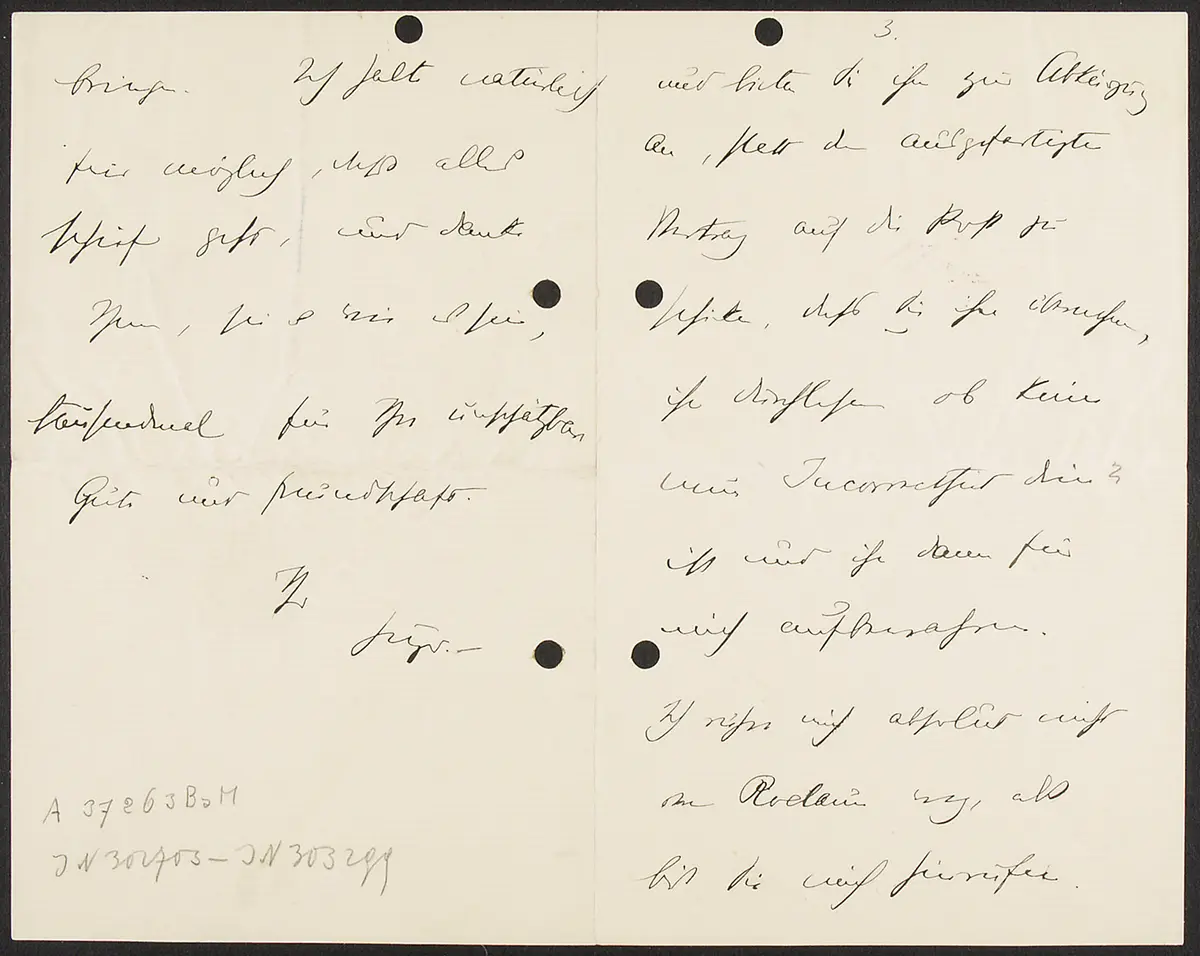 bringen. Ich halte natürlich
für möglich, dass alles
schief geht, und danke
Ihnen, sei es wie es sei,
tausendmal für Ihre unschätzbare
Güte und Freundschaft.
Ihr
Hugo.–
A 37263
IN 302703 – IN 303299
3.
und bieten Sie ihm zur Abkürzung
an, statt den ausgefertigten
Vertrag auf die Post zu
schicken, dass Sie ihn übernehmen,
ihn durchlesen ob keine
neue Incorrectheit drin
ist und ihn dann für
mich aufbewahren.
Ich rühre mich absolut nicht
von Rodaun weg, als
bis Sie mich hinrufen.